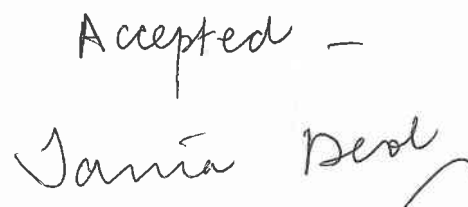 Accepted –
Tania Deol